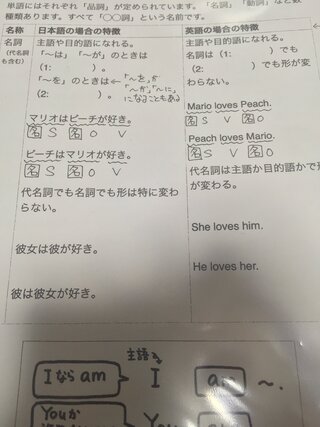 単語にはそれぞれ「品詞」が定められています。「名詞」「動詞」など数
種類あります。すべて「〇〇詞」という名前です。
名称 日本語の場合の特徴 英語の場合の特徴
名詞
(代名詞
も含む)
主語や目的語になれる。
「〜は」「〜が」のときは
(1: )。
「〜を」のときは←「〜を」が
(2: )。「〜が」「〜に」
になることもある
マリオはピーチが好き。
名 S 名 O V
ピーチはマリオが好き。
名 S 名 O V
代名詞でも名詞でも形は特に変わ
らない。
彼女は彼が好き。
彼は彼女が好き。
主語や目的語になれる。
名詞は(1: )でも
(2: )でも形が変
わらない。
Mario loves Peach.
名 S V 名 O
Peach loves Mario.
名 S V 名 O
代名詞は主語か目的語かで形
が変わる。
She loves him.
He loves her.
主語
I なら am I 〜.
You か You